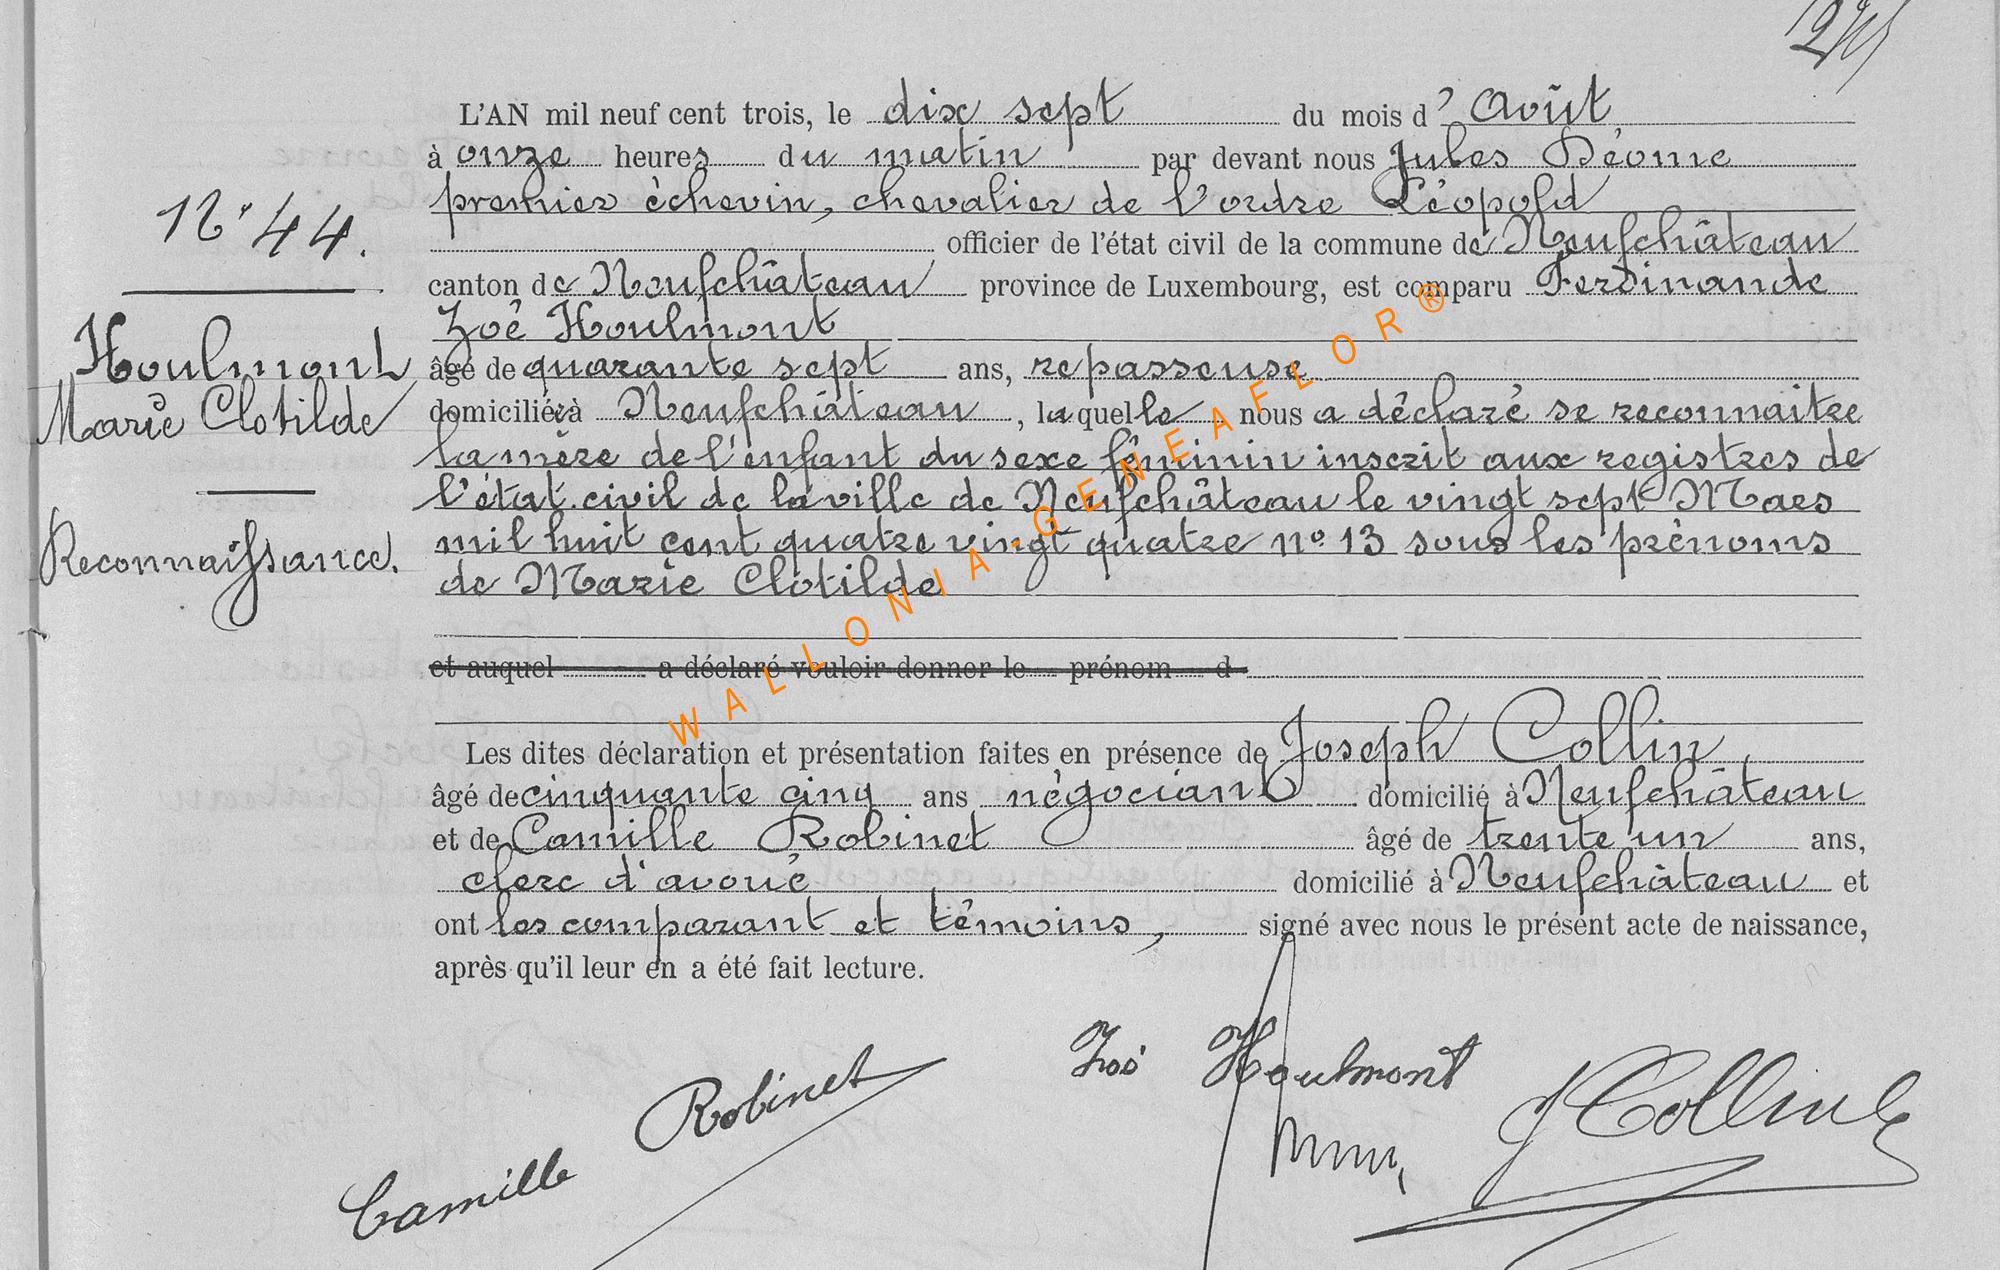 L'AN mil neuf cent trois, le dix sept du mois d' Août
à onze heures du matin par devant nous Jules Déome
premier échevin, chevalier de l'ordre Léopold
N° 44.
officier de l'état civil de la commune de Neufchâteau
canton de Neufchâteau province de Luxembourg, est comparu Ferdinande
Zoé Houlmont
Houlmont
âgé de quarante sept ans, repasseuse
Marie Clotilde
domiciliée à Neufchâteau, laquelle nous a déclaré se reconnaitre
la mère de l'enfant du sexe féminin inscrit aux registres de
l'état civil de la ville de Neufchâteau le vingt sept Mars
Reconnaissance.
mil huit cent quatre vingt quatre n° 13 sous les prénoms
de Marie Clotilde
et auquel a déclaré vouloir donner le prénom d
Les dites déclaration et présentation faites en présence de Joseph Collin,
âgé de cinquante cinq ans négociant domicilié à Neufchâteau
et de Camille Robinet âgé de trente un ans,
clerc d'avoué domicilié à Neufchâteau et
ont les comparant et témoins, signé avec nous le présent acte de naissance,
après qu'il leur en a été fait lecture.
Zoé Houlmont
Camille Robinet
J Collin
WALLONIA-GENEAFLOR®